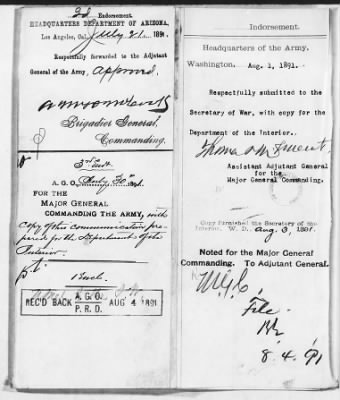 2d Indorsement.
HEADQUARTERS DEPARTMENT OF ARIZONA,
Los Angeles, Cal., July 21. 1891
Respectfully forwarded to the Adjutant
General of the Army, Approved.
Brigadier General,
Commanding.
3rd Endt
A. G. O. July 30th 1891.
FOR THE
MAJOR GENERAL
COMMANDING THE ARMY, with
copy of this communication pre-
pared for the Department of the
Interior.
1 Encl.
REC'D BACK A.G.O. P.R.D. AUG 4 1891
Indorsement.
Headquarters of the Army.
Washington. Aug. 1, 1891.
Respectfully submitted to the
Secretary of War, with copy for the
Department of the Interior.
Assistant Adjutant General
for the
Major General Commanding.
Copy furnished the Secretary of the
Interior. W. D. Aug 3, 1891.
Noted for the Major General
Commanding. To Adjutant General.
File
8.4.91